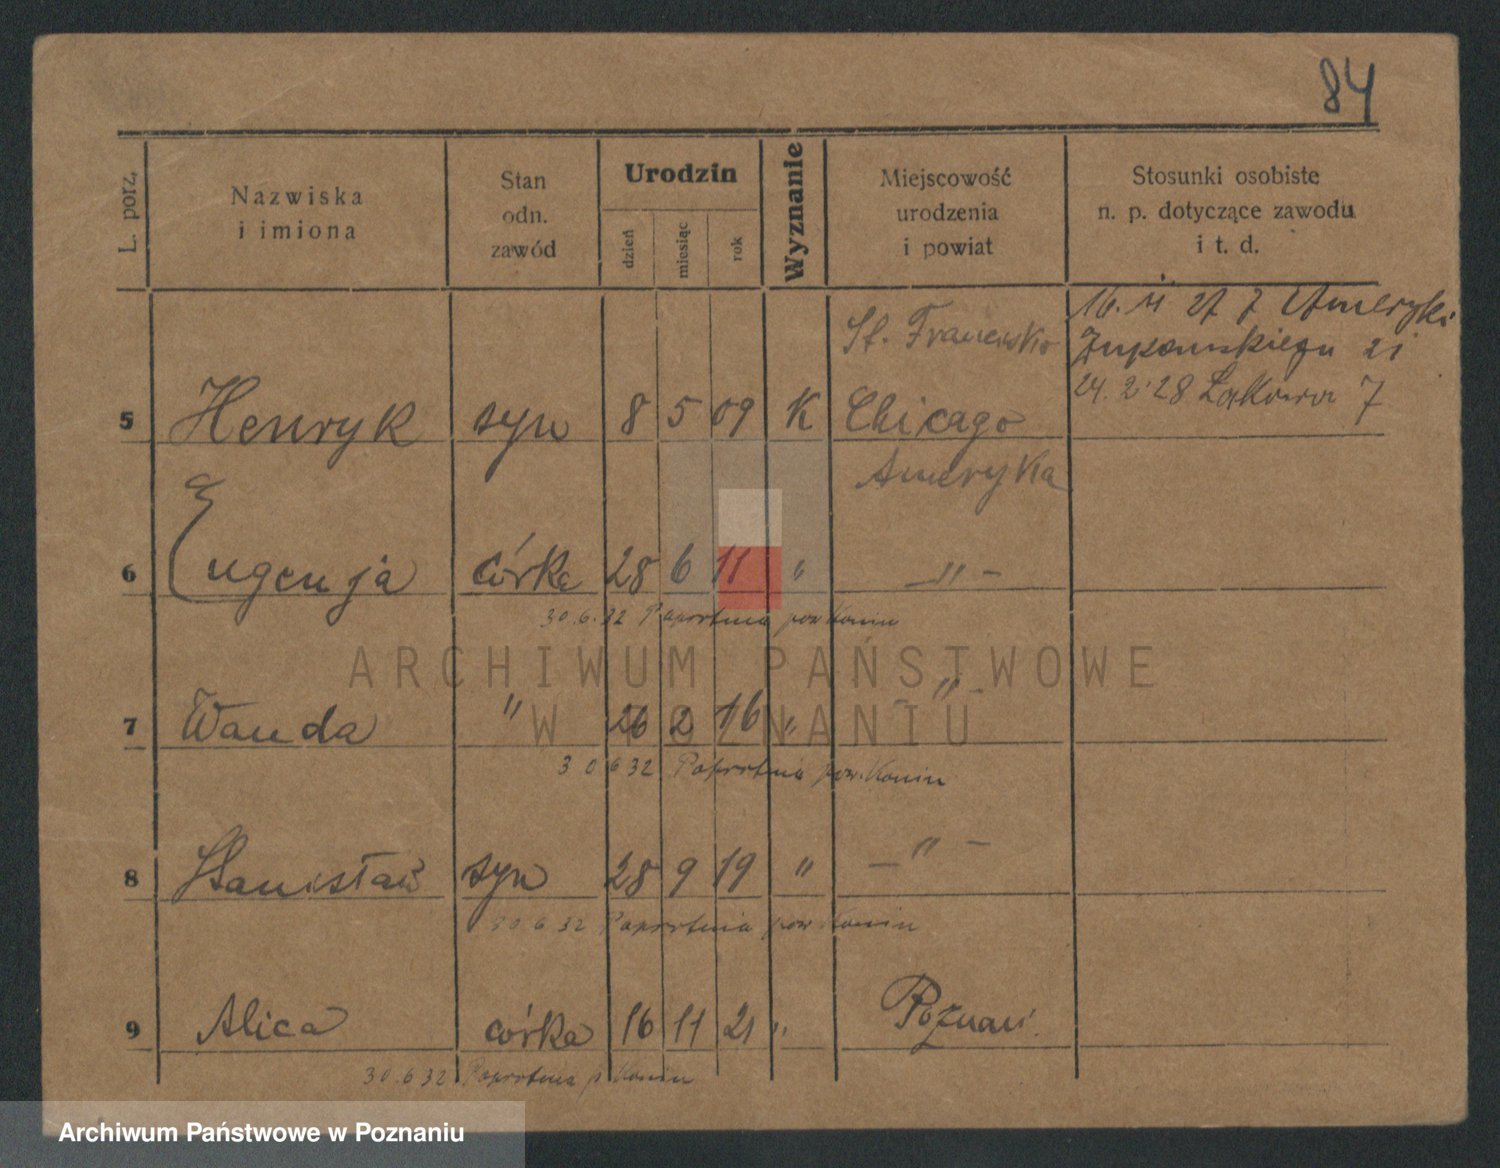 84
L. porz.
Nazwiska
i imiona
Stan
odn.
zawód
Urodzin
dzień
miesiąc
rok
Wyznanie
Miejscowość
urodzenia
i powiat
Stosunki osobiste
n. p. dotyczące zawodu
i t. d.
Ameryki
21
24. 2 28 Łąkowa 7
5 Henryk syn 8 5 09 K Chicago
Ameryka
6 Eugenja córka 28 6 11 " -"-
30.6.32 Paprotnia pow Konin
ARCHIWUM PAŃSTWOWE
W POZNANIU
7 Wanda " 26 2 16 " -"-
30 6 32 Paprotnia pow. Konin
8 Stanisław syn 28 9 19 " -"-
30 6 32 Paprotnia pow Konin
9 Alica córka 16 11 21 " Poznań
30.6 32 Paprotnia p Konin
Archiwum Państwowe w Poznaniu